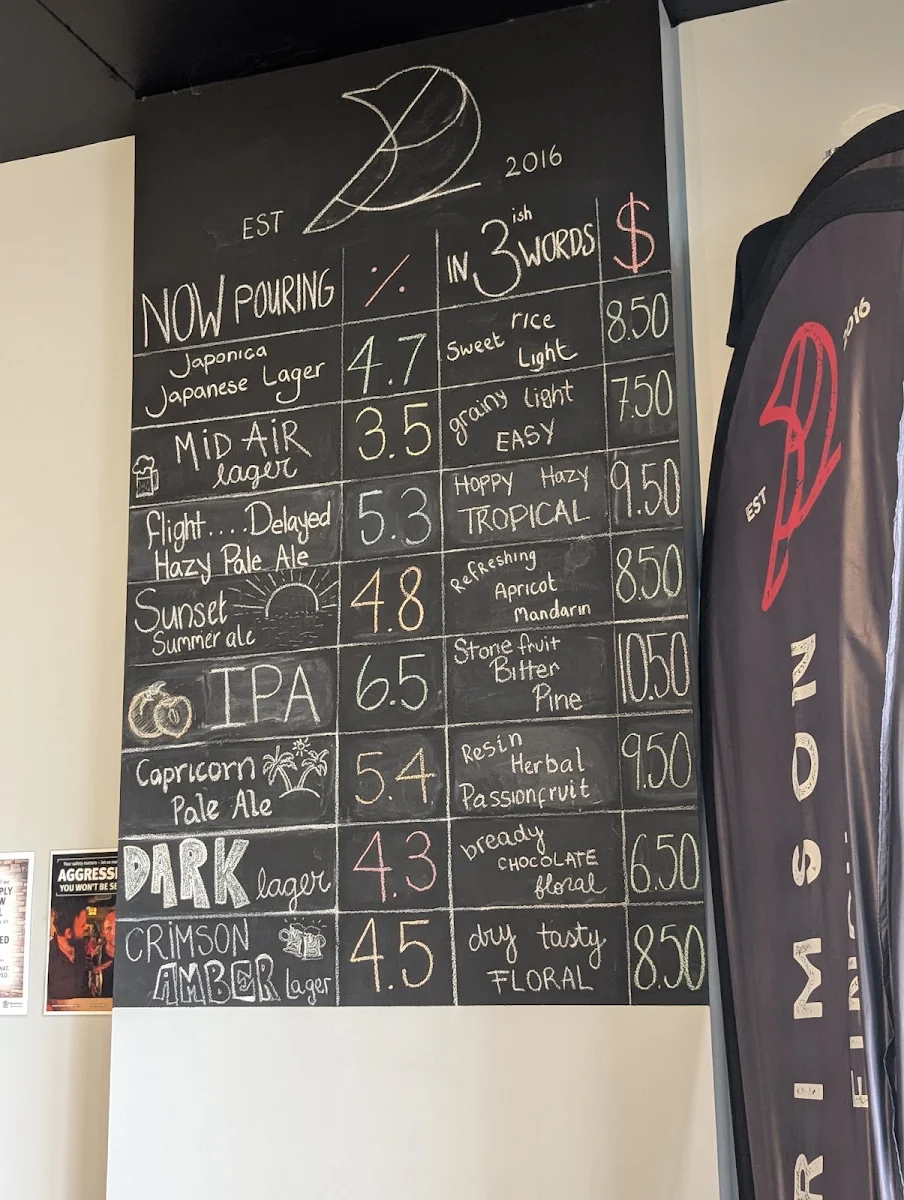 EST 2016
NOW POURING % IN 3ish WORDS $
Japonica
Japanese Lager
4.7
Sweet rice
Light
8.50
MID AIR
lager
3.5
grainy light
EASY
7.50
flight....Delayed
Hazy Pale Ale
5.3
HOPPY Hazy
TROPICAL
9.50
Sunset
Summer ale
4.8
Refreshing
Apricot
Mandarin
8.50
IPA
6.5
Stone fruit
Bitter
Pine
10.50
Capricorn
Pale Ale
5.4
Resin
Herbal
Passionfruit
9.50
DARK lager
4.3
bready
CHOCOLATE
floral
6.50
CRIMSON
AMBER Lager
4.5
dry tasty
FLORAL
8.50
EST 2016
RIMSON
FIN
Your safety matters
AGGRESS
YOU WON'T BE SE